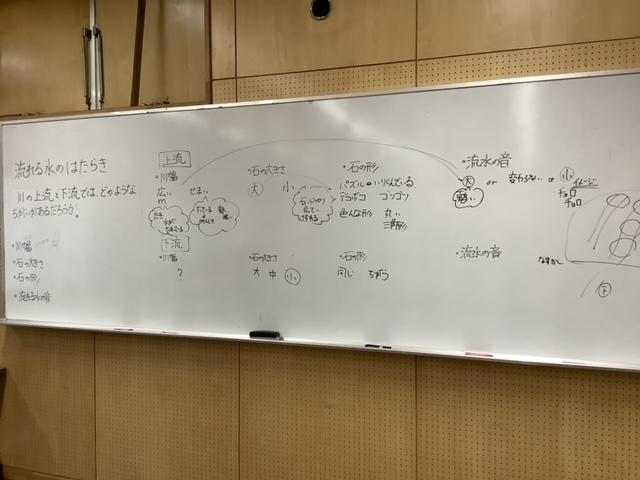 流れる水のはたらき
川の上流と下流では、どのような
ちがいがあるだろうか。
・川幅
・石の大きさ
・石の形
・流れる水の音
上流
・川幅
広い
せまい
m
・石の大きさ
大 小
・石の形
パズル
デコボコ ゴツゴツ
色んな形 丸い
三角形
・流水の音
大 or 変わらない or 小
イメージ
チョロ
チョロ
下流
・川幅
?
・石の大きさ
大 中 小
・石の形
同じ ちがう
・流水の音